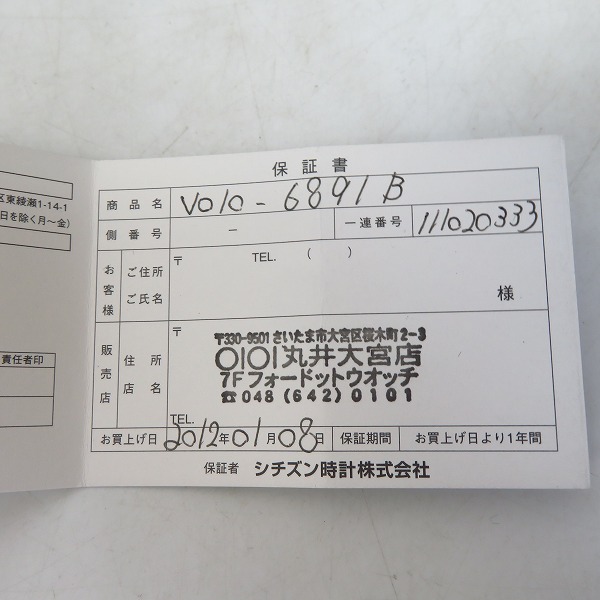 区東綾瀬1-14-1
日を除く月～金)
責任者印
保証書
商品名 V010-6891B
側番号 － 一連番号 111020333
お客様 ご住所 ご氏名 〒 TEL. ( ) 様
販売店 住所 店名 〒
〒330-9501 さいたま市大宮区桜木町2-3
OIOI丸井大宮店
7Fフォードットウオッチ
☎048(642)0101
TEL.
お買上げ日 2012年01月08日 保証期間 お買上げ日より1年間
保証者 シチズン時計株式会社